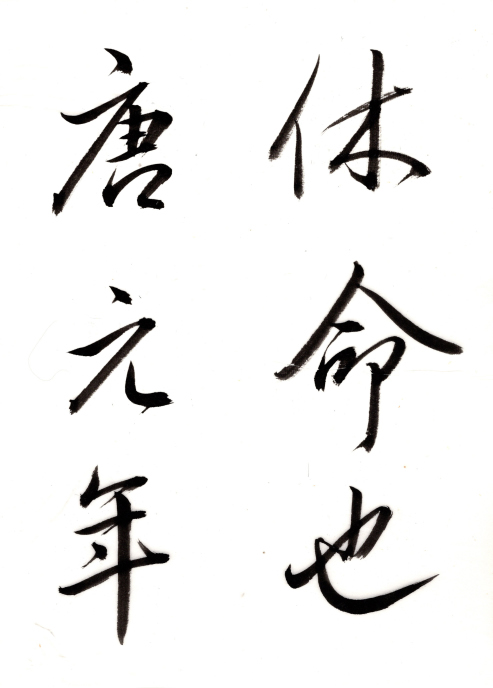 休命也
唐元年